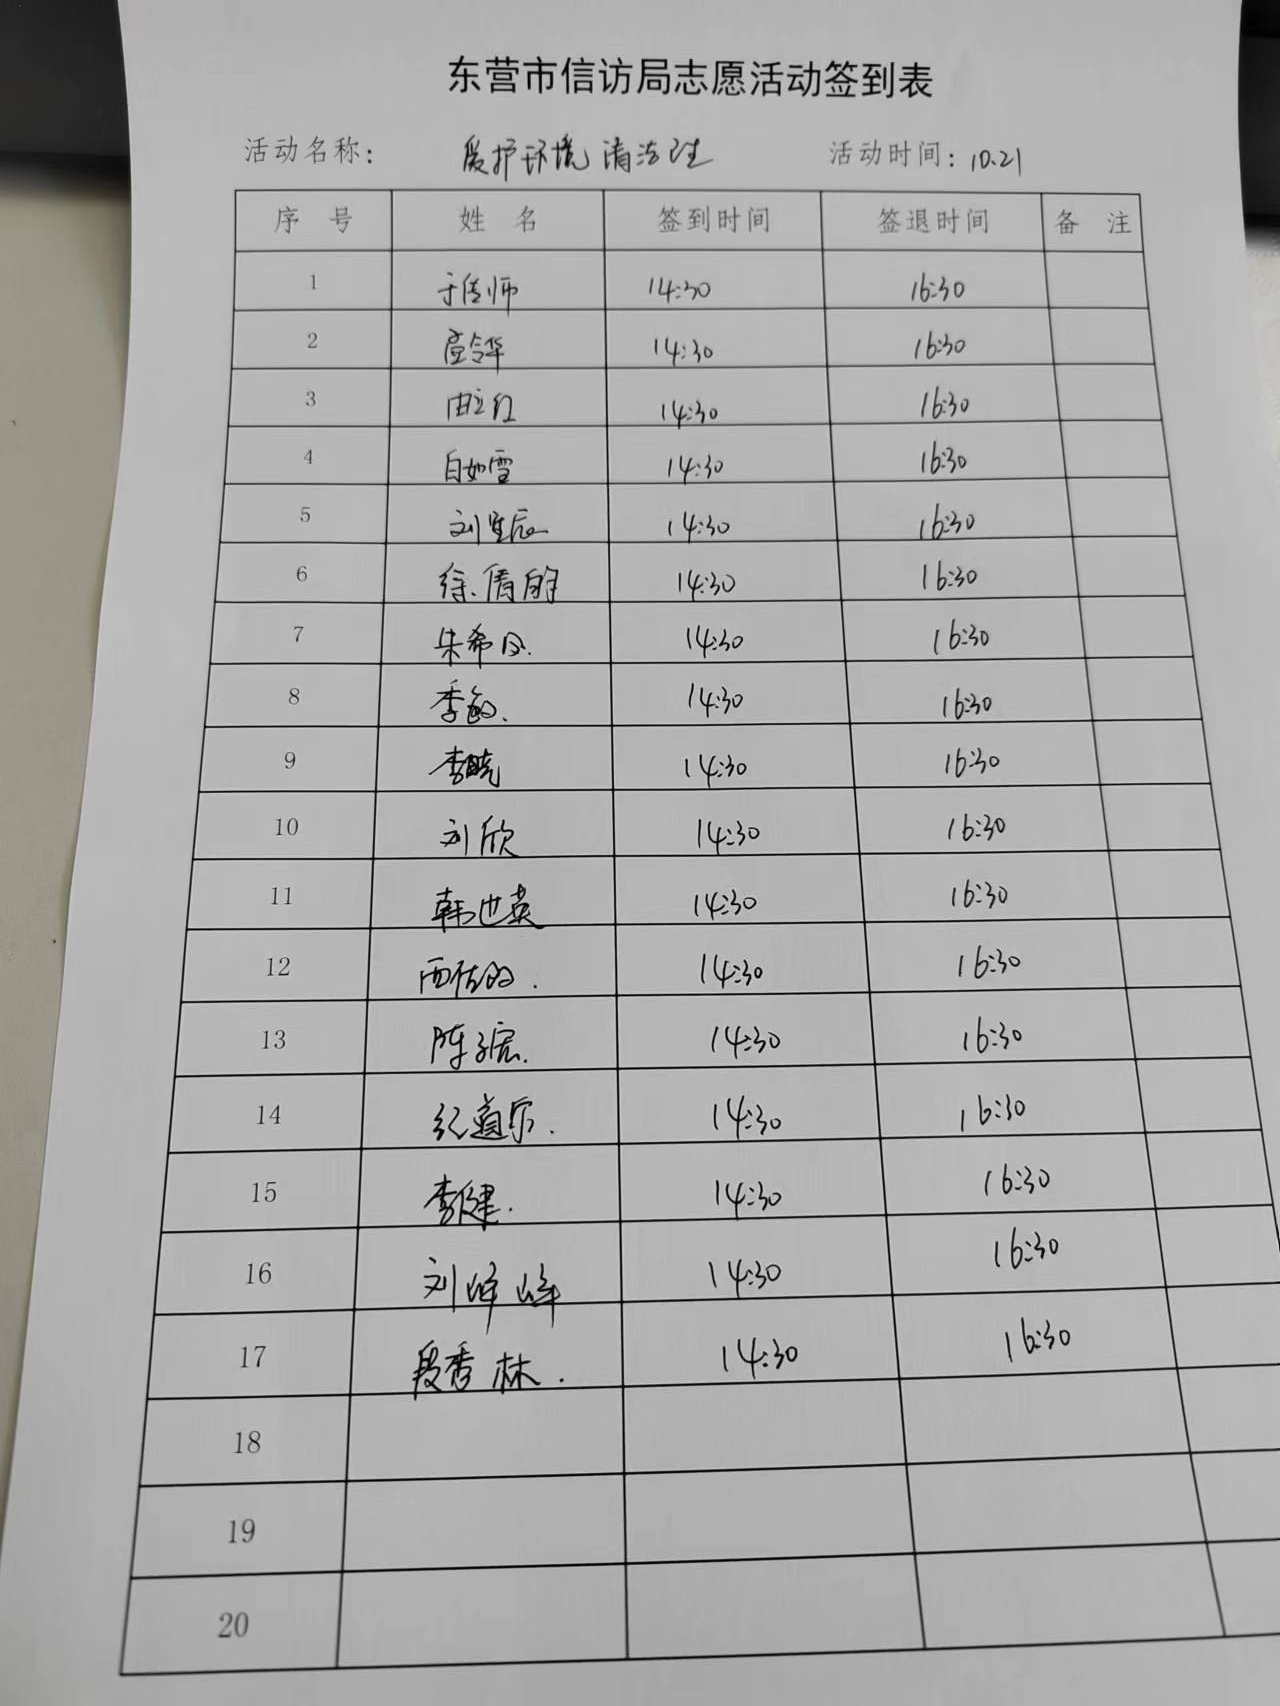 东营市信访局志愿活动签到表
活动名称: 爱护环境 清洁 活动时间: 10.21
序号 姓名 签到时间 签退时间 备注
1 于传师 14:30 16:30
2 令华 14:30 16:30
3 由立红 14:30 16:30
4 白如雪 14:30 16:30
5 刘星辰 14:30 16:30
6 徐倩 14:30 16:30
7 朱希 14:30 16:30
8 季敏 14:30 16:30
9 李晓 14:30 16:30
10 刘欣 14:30 16:30
11 韩世英 14:30 16:30
12 14:30 16:30
13 陈子宸 14:30 16:30
14 纪道尔 14:30 16:30
15 李健 14:30 16:30
16 刘峰峰 14:30 16:30
17 段秀林 14:30 16:30
18
19
20